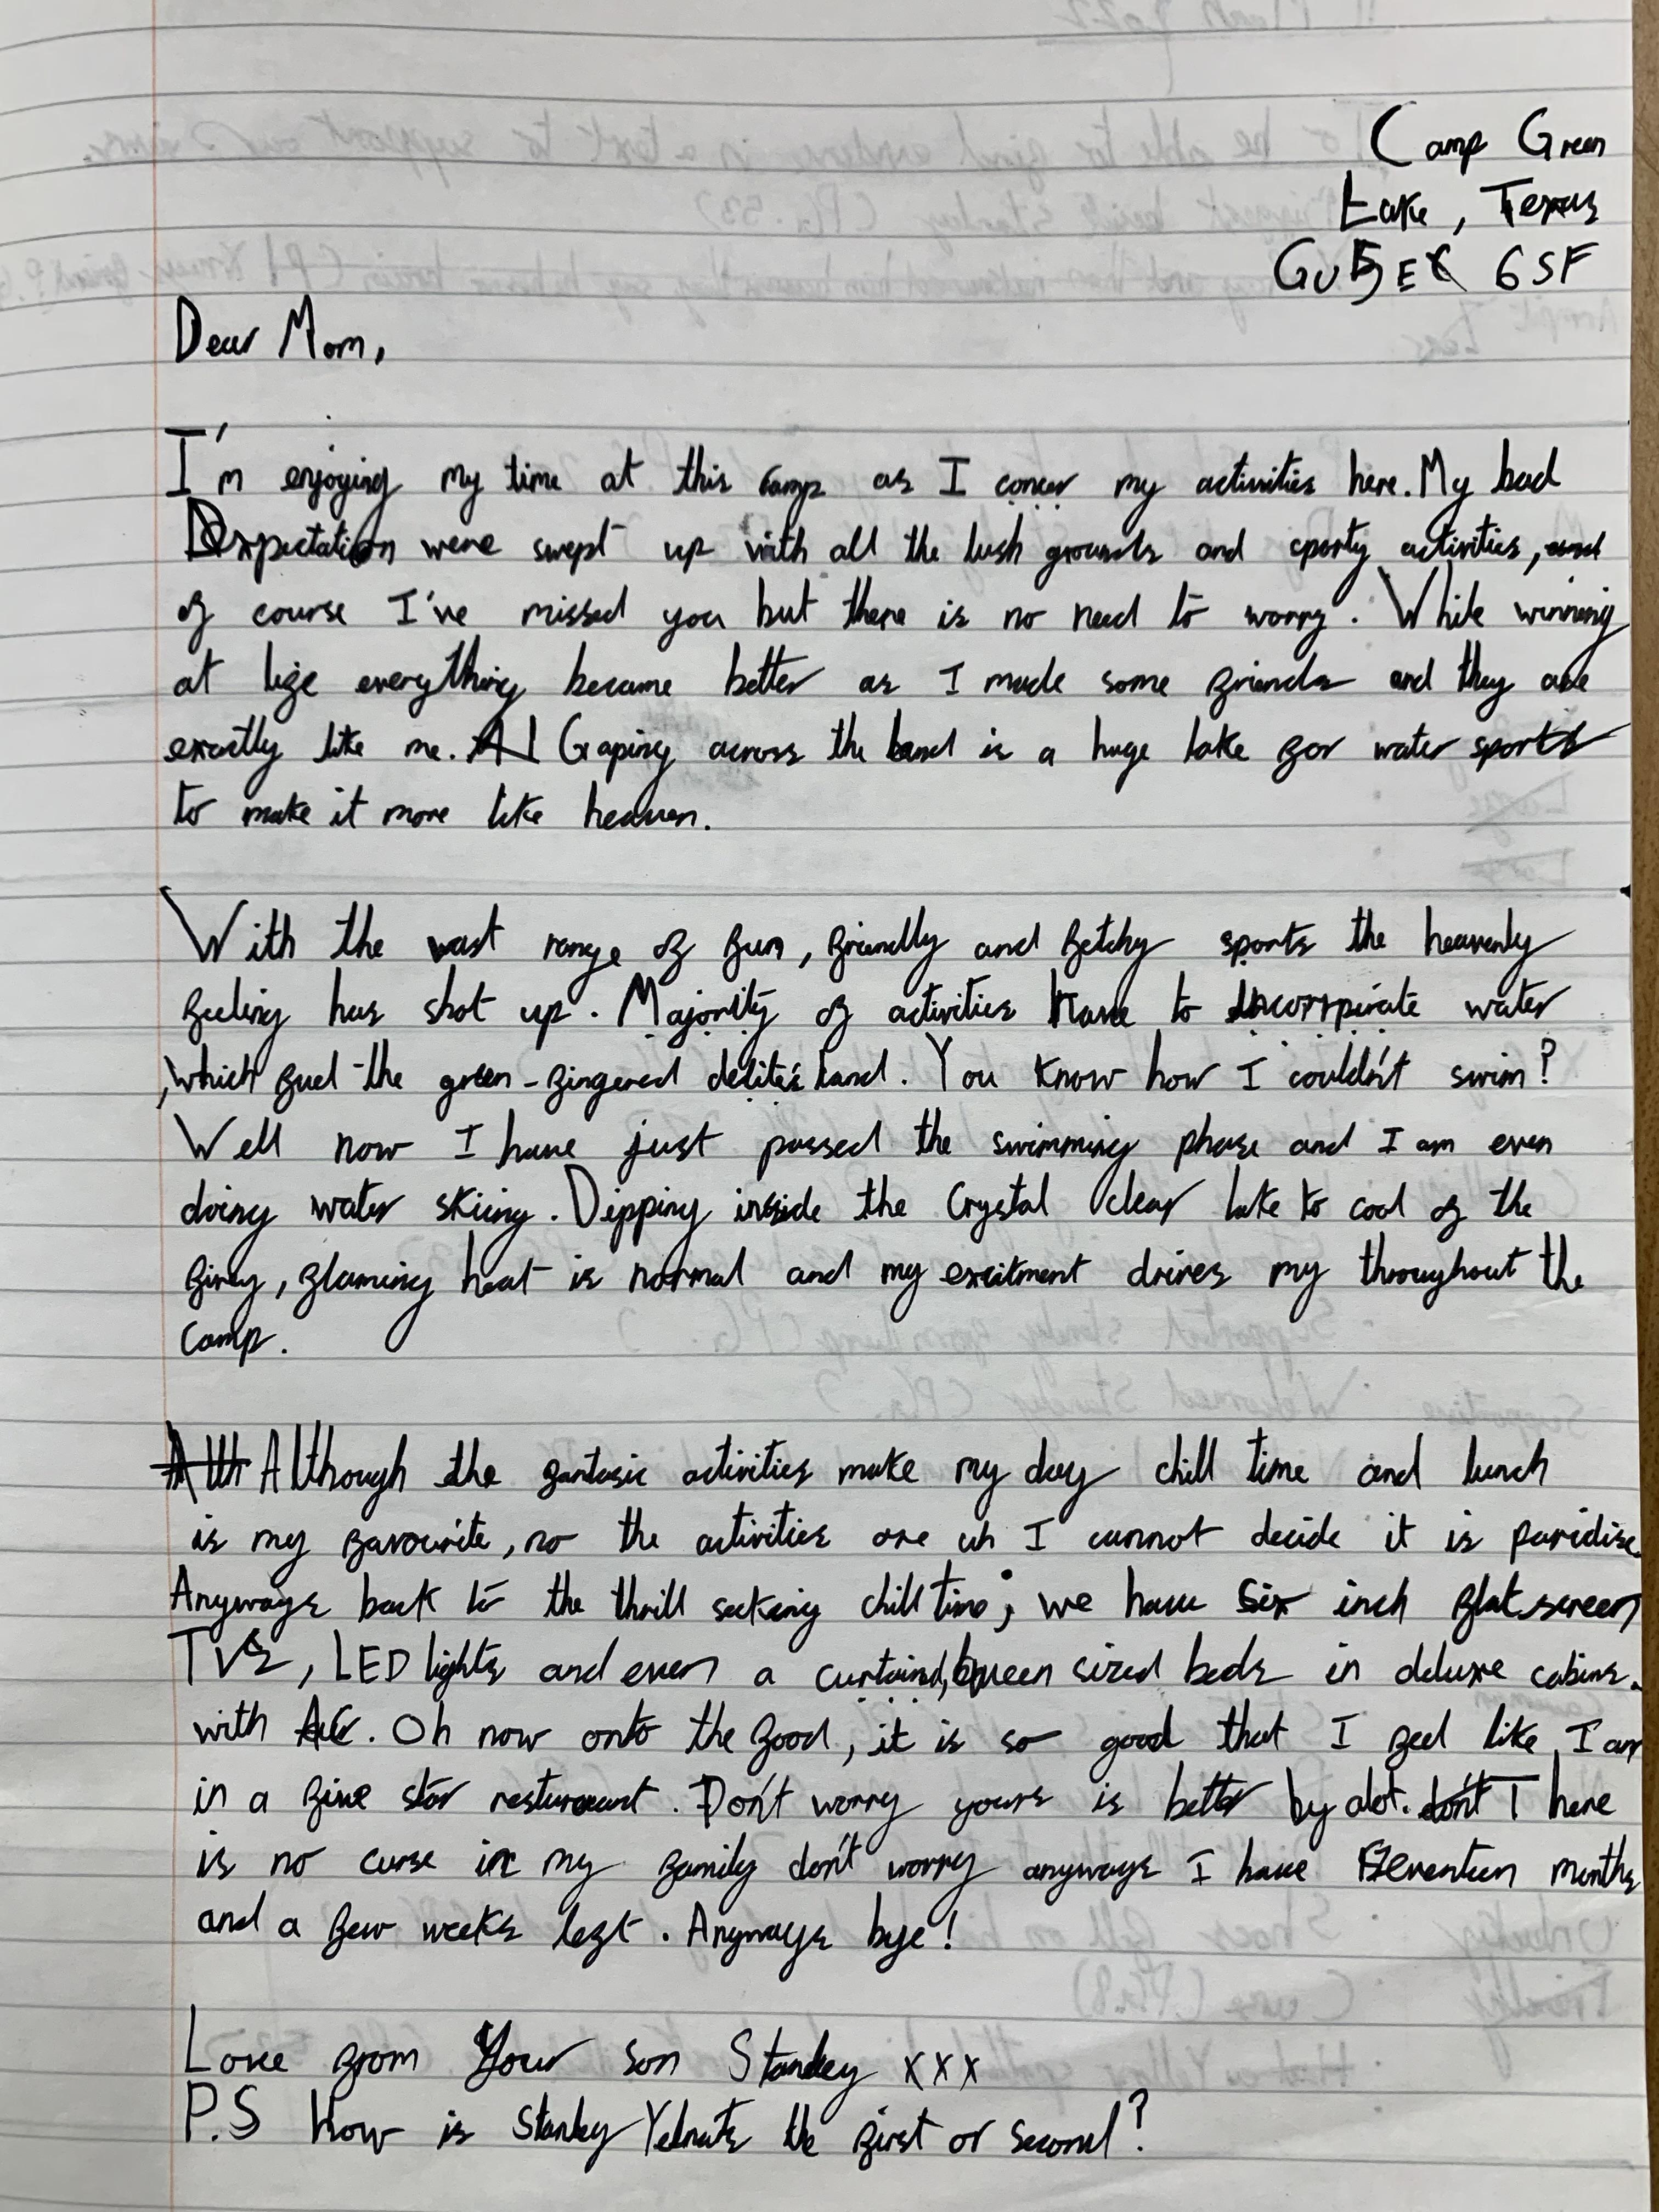 Camp Green
Lake, Texas
GU5E 6SF
Dear Mom,
I'm enjoying my time at this camp as I concur my activities here. My bad
Expectation were swept up with all the lush grounds and sporty activities, and
of course I've missed you but there is no need to worry. While winning
at life everything became better as I made some friends and they are
exactly like me. Gaping across the land is a huge lake for water sports
to make it more like heaven.
With the vast range of fun, friendly and fetchy sports the heavenly
feeling has shot up. Majority of activities have to incorrpirate water
, which fuel the green-fingered delites land. You know how I couldn't swim?
Well now I have just passed the swimming phase and I am even
doing water skiing. Dipping inside the Crystal clear lake to cool of the
firey, flaming heat is normal and my excitment drives my throughout the
camp.
Although the fantasic activities make my day chill time and lunch
is my favourite, no the activities are uh I cannot decide it is paridise.
Anyways back to the thrill seeking chill time; we have six inch flat screen
TVs, LED lights and even a curtaind, queen sized beds in deluxe cabins.
with AC. Oh now onto the food, it is so good that I feel like I am
in a five star resturaunt. Don't worry yours is better by alot. There
is no curse in my family don't worry anyways I have seventeen months
and a few weeks left. Anyways bye!
Love from Your son Stanley xxx
P.S How is Stanley Yelnats the first or second?